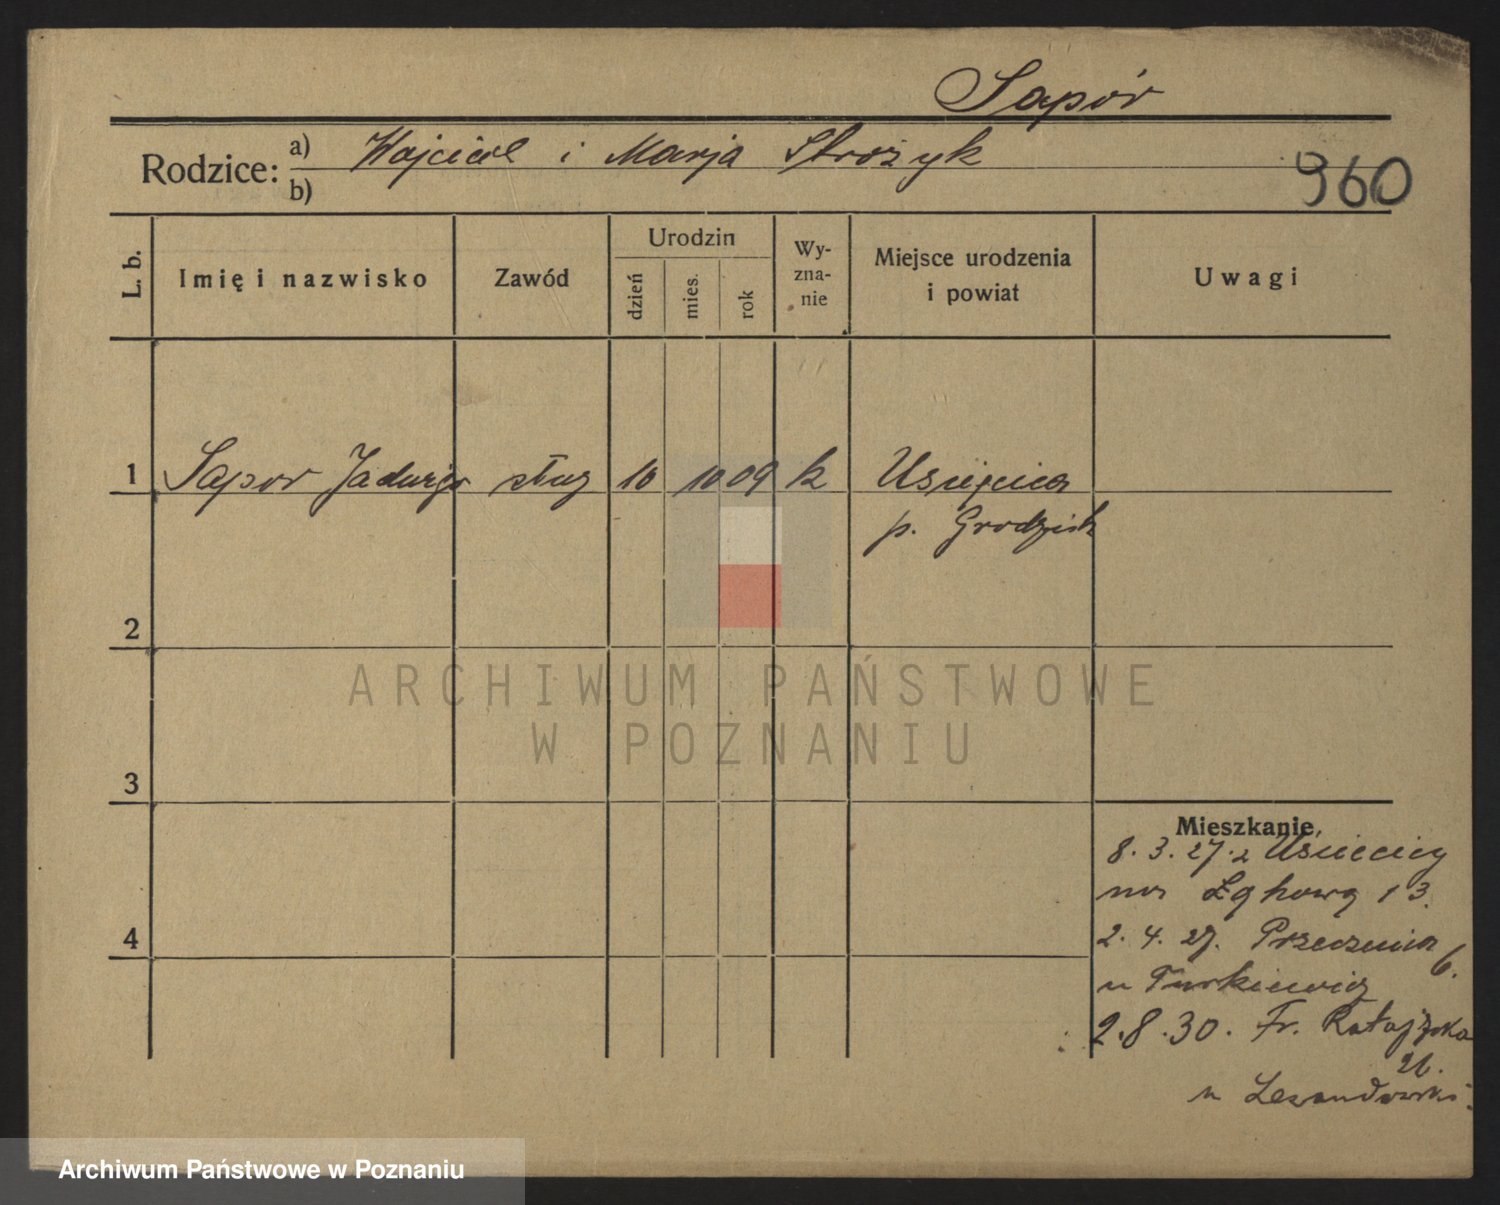 Sapór
Rodzice: a) Wojciech i Marja Strożyk
b)
960
L. b.
Imię i nazwisko
Zawód
Urodzin
dzień
mies.
rok
Wy-
zna-
nie
Miejsce urodzenia
i powiat
Uwagi
1 Sapor Jadwiga służ 10 10 09 k Uścięcice
p. Grodzisk
2
3
4
Mieszkanie
8. 3. 27. z Uścięcicy
na Łąkową 13.
2. 4. 27. Przecznica 6.
u Turkiewicz
2. 8. 30. Fr. Ratajczaka
26.
u Lewandowski
ARCHIWUM PAŃSTWOWE
W POZNANIU
Archiwum Państwowe w Poznaniu